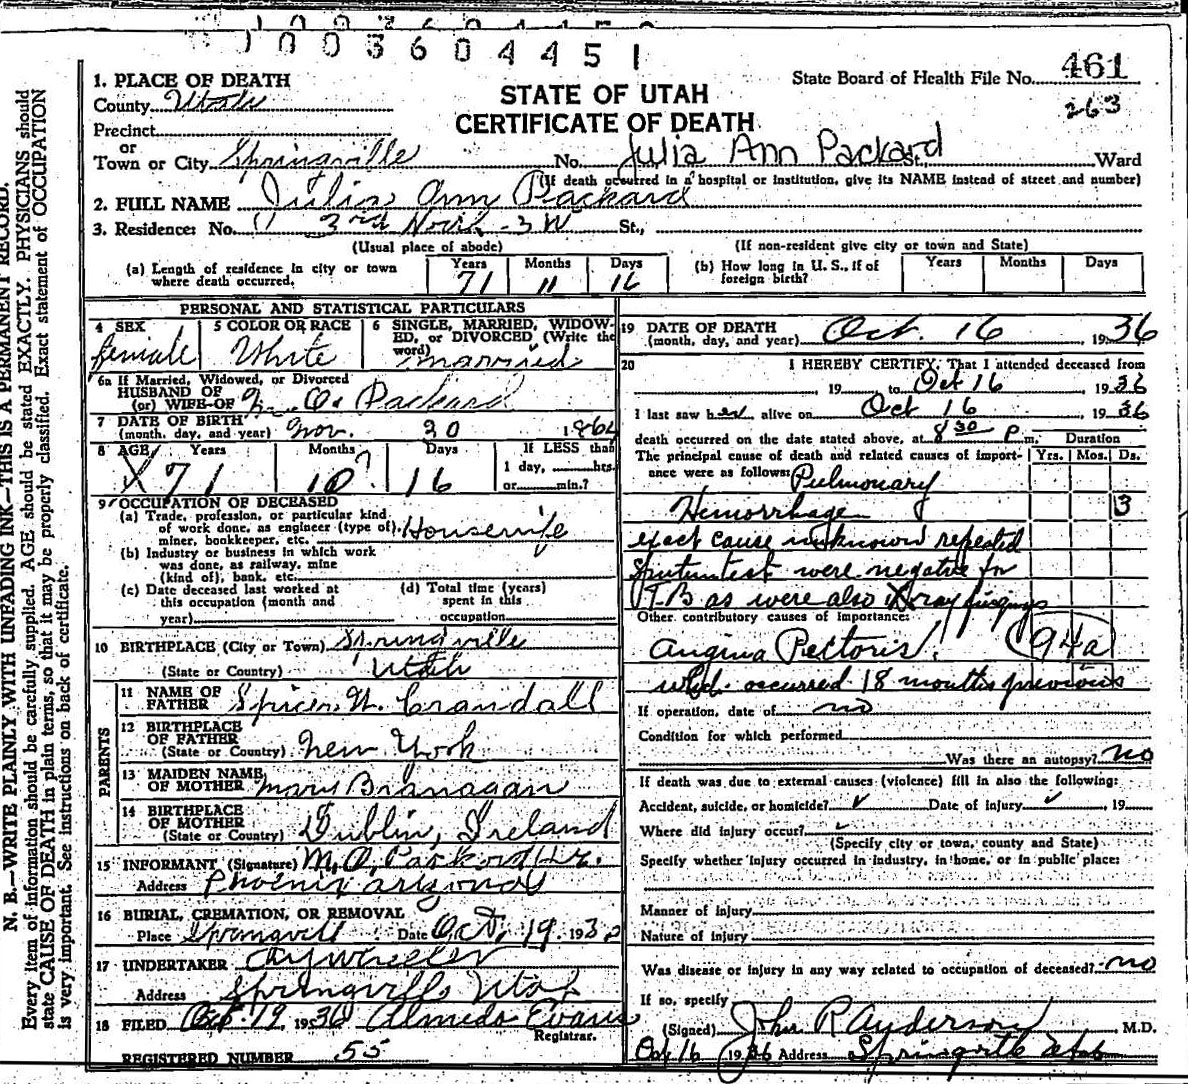 1003604451
State Board of Health File No. 461
263
1. PLACE OF DEATH
STATE OF UTAH
CERTIFICATE OF DEATH
County Utah
Precinct
or
Town or City Springville No. Julia Ann Packard St., Ward
(If death occurred in a hospital or institution, give its NAME instead of street and number)
2. FULL NAME Julia Ann Packard
3. Residence: No. 3rd North - 3 W St.,
(Usual place of abode) (If non-resident give city or town and State)
(a) Length of residence in city or town where death occurred. Years 71 Months 11 Days 16
(b) How long in U. S., if of foreign birth? Years Months Days
PERSONAL AND STATISTICAL PARTICULARS
4 SEX female
5 COLOR OR RACE White
6 SINGLE, MARRIED, WIDOWED, or DIVORCED (Write the word) married
6a If Married, Widowed, or Divorced
HUSBAND OF
(or) WIFE OF M. O. Packard
7 DATE OF BIRTH
(month, day, and year) Nov. 30 1864
8 AGE Years 71 Months 10? Days 16
If LESS than
1 day, hrs.
or min.?
9 OCCUPATION OF DECEASED
(a) Trade, profession, or particular kind
of work done, as engineer (type of), Housewife
miner, bookkeeper, etc.
(b) Industry or business in which work
was done, as railway, mine
(kind of), bank, etc.
(c) Date deceased last worked at
this occupation (month and
year)
(d) Total time (years)
spent in this
occupation
10 BIRTHPLACE (City or Town) Springville
(State or Country) Utah
PARENTS
11 NAME OF
FATHER Spicer W. Crandall
12 BIRTHPLACE
OF FATHER
(State or Country) New York
13 MAIDEN NAME
OF MOTHER Mary Branagan
14 BIRTHPLACE
OF MOTHER
(State or Country) Dublin, Ireland
15 INFORMANT (Signature) M. O. Packard Jr.
Address Phoenix Arizona
16 BURIAL, CREMATION, OR REMOVAL
Place Springvill Date Oct. 19 193
17 UNDERTAKER A Y Wheeler
Address Springville Utah
18 FILED Oct. 19, 1936 Almeda Evans
Registrar.
REGISTERED NUMBER 55
19 DATE OF DEATH
(month, day, and year) Oct. 16, 1936
20 I HEREBY CERTIFY, That I attended deceased from
19 to Oct 16 1936
I last saw her alive on Oct 16 1936
death occurred on the date stated above, at 8 30 P m. Duration
The principal cause of death and related causes of import- Yrs. Mos. Ds.
ance were as follows: Pulmonary
Hemorrhage 3
exact cause unknown repeated
Sputum test were negative for
T B as were also X ray findings
Other contributory causes of importance:
Angina Pectoris! 94a
which occurred 18 months previous
If operation, date of no
Condition for which performed
Was there an autopsy? no
If death was due to external causes (violence) fill in also the following:
Accident, suicide, or homicide? ✓ Date of injury ✓, 19
Where did injury occur? ✓
(Specify city or town, county and State)
Specify whether injury occurred in industry, in home, or in public place:
Manner of injury
Nature of injury
Was disease or injury in any way related to occupation of deceased? no
If so, specify
(Signed) John R Anderson, M.D.
Oct 16 1936 Address Springville Utah
N. B.—WRITE PLAINLY WITH UNFADING INK—THIS IS A PERMANENT RECORD.
Every item of information should be carefully supplied. AGE should be stated EXACTLY. PHYSICIANS should
state CAUSE OF DEATH in plain terms, so that it may be properly classified. Exact statement of OCCUPATION
is very important. See instructions on back of certificate.